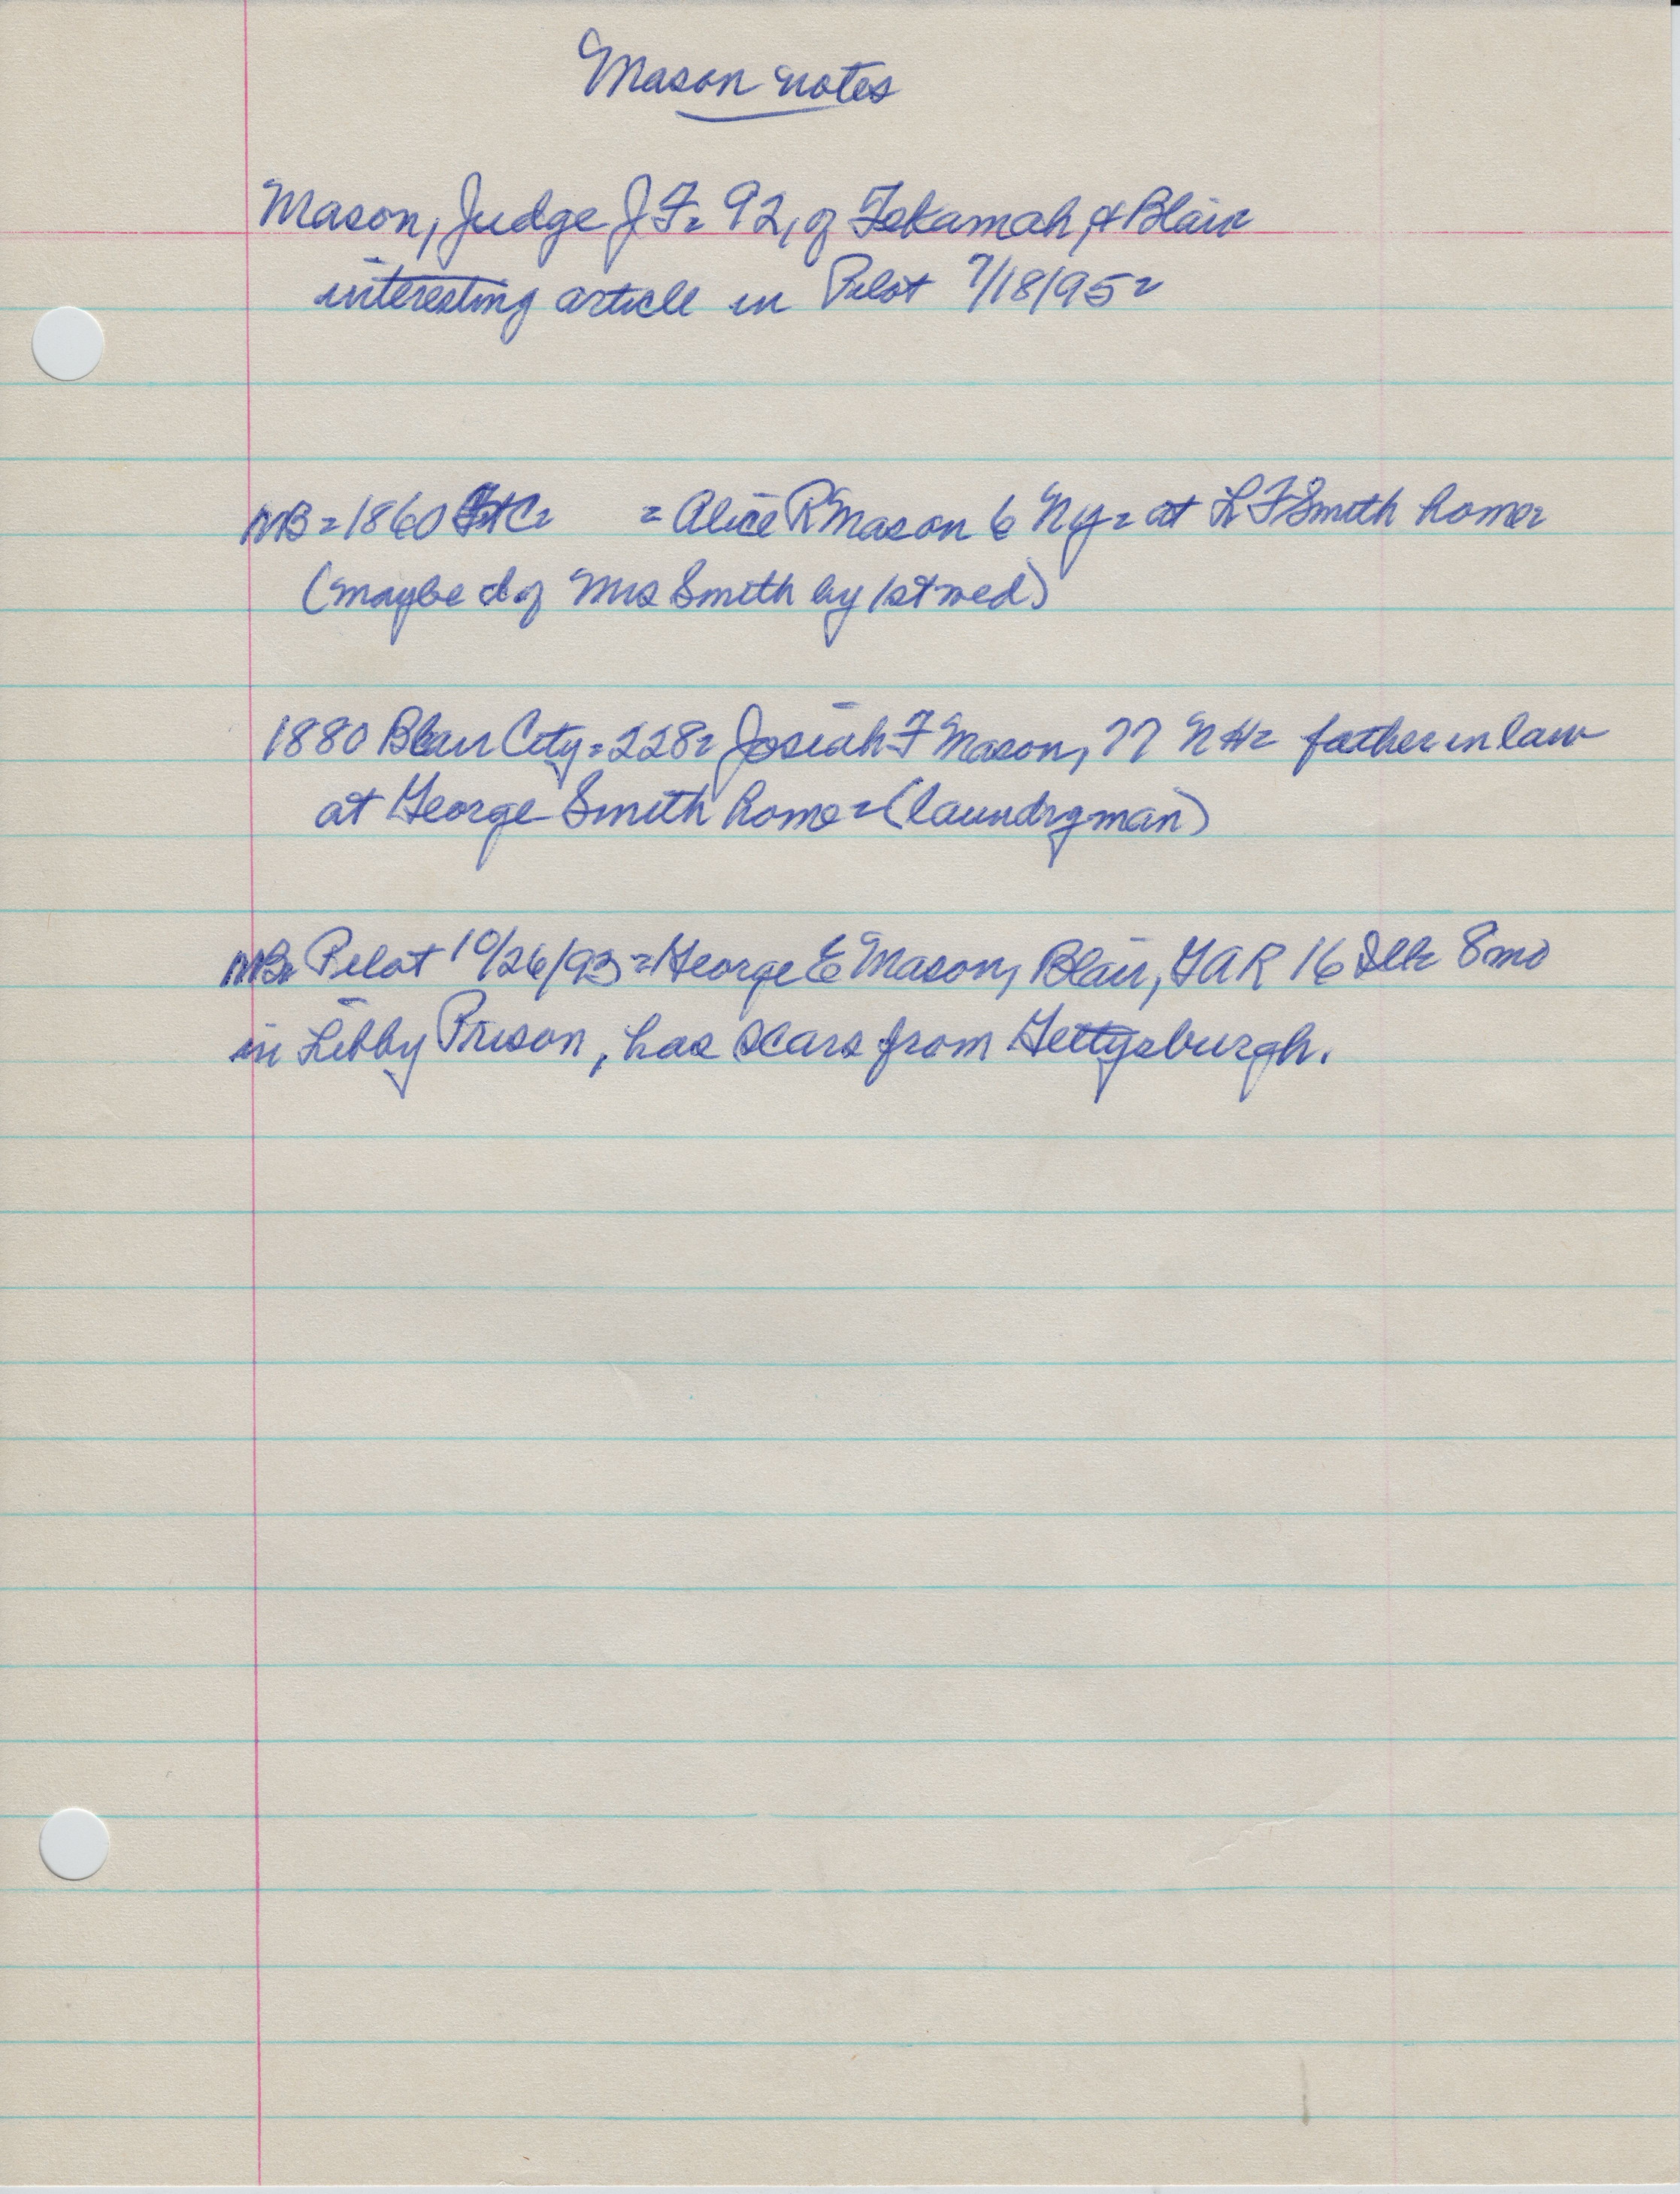 Mason notes
Mason, Judge J F= 92, of Tekamah & Blair
interesting article in Pilot 7/18/1952
MB=1860 FtC= = Alice R Mason 6 NY= at L F Smith home=
(maybe d of Mrs Smith by 1st wed)
1880 Blair City=228= Josiah F Mason, 77 NH= father in law
at George Smith home=(laundryman)
MB= Pilot 10/26/93=George E Mason, Blair, GAR 16 Ills 8mo
in Libby Prison, has scars from Gettysburgh.